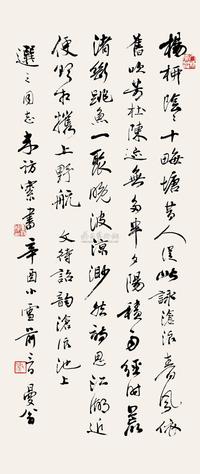 楊柳陰〻十畮塘昔人從此詠滄浪春風依
舊吹芳杜陳迹無多半夕陽積雨經時荒
渚斷跳魚一聚晚波涼渺然詩思江湖近
便欲相攜上野航 文待詔韵滄浪池上
選之同志來訪索書辛酉小雪前 曼翁